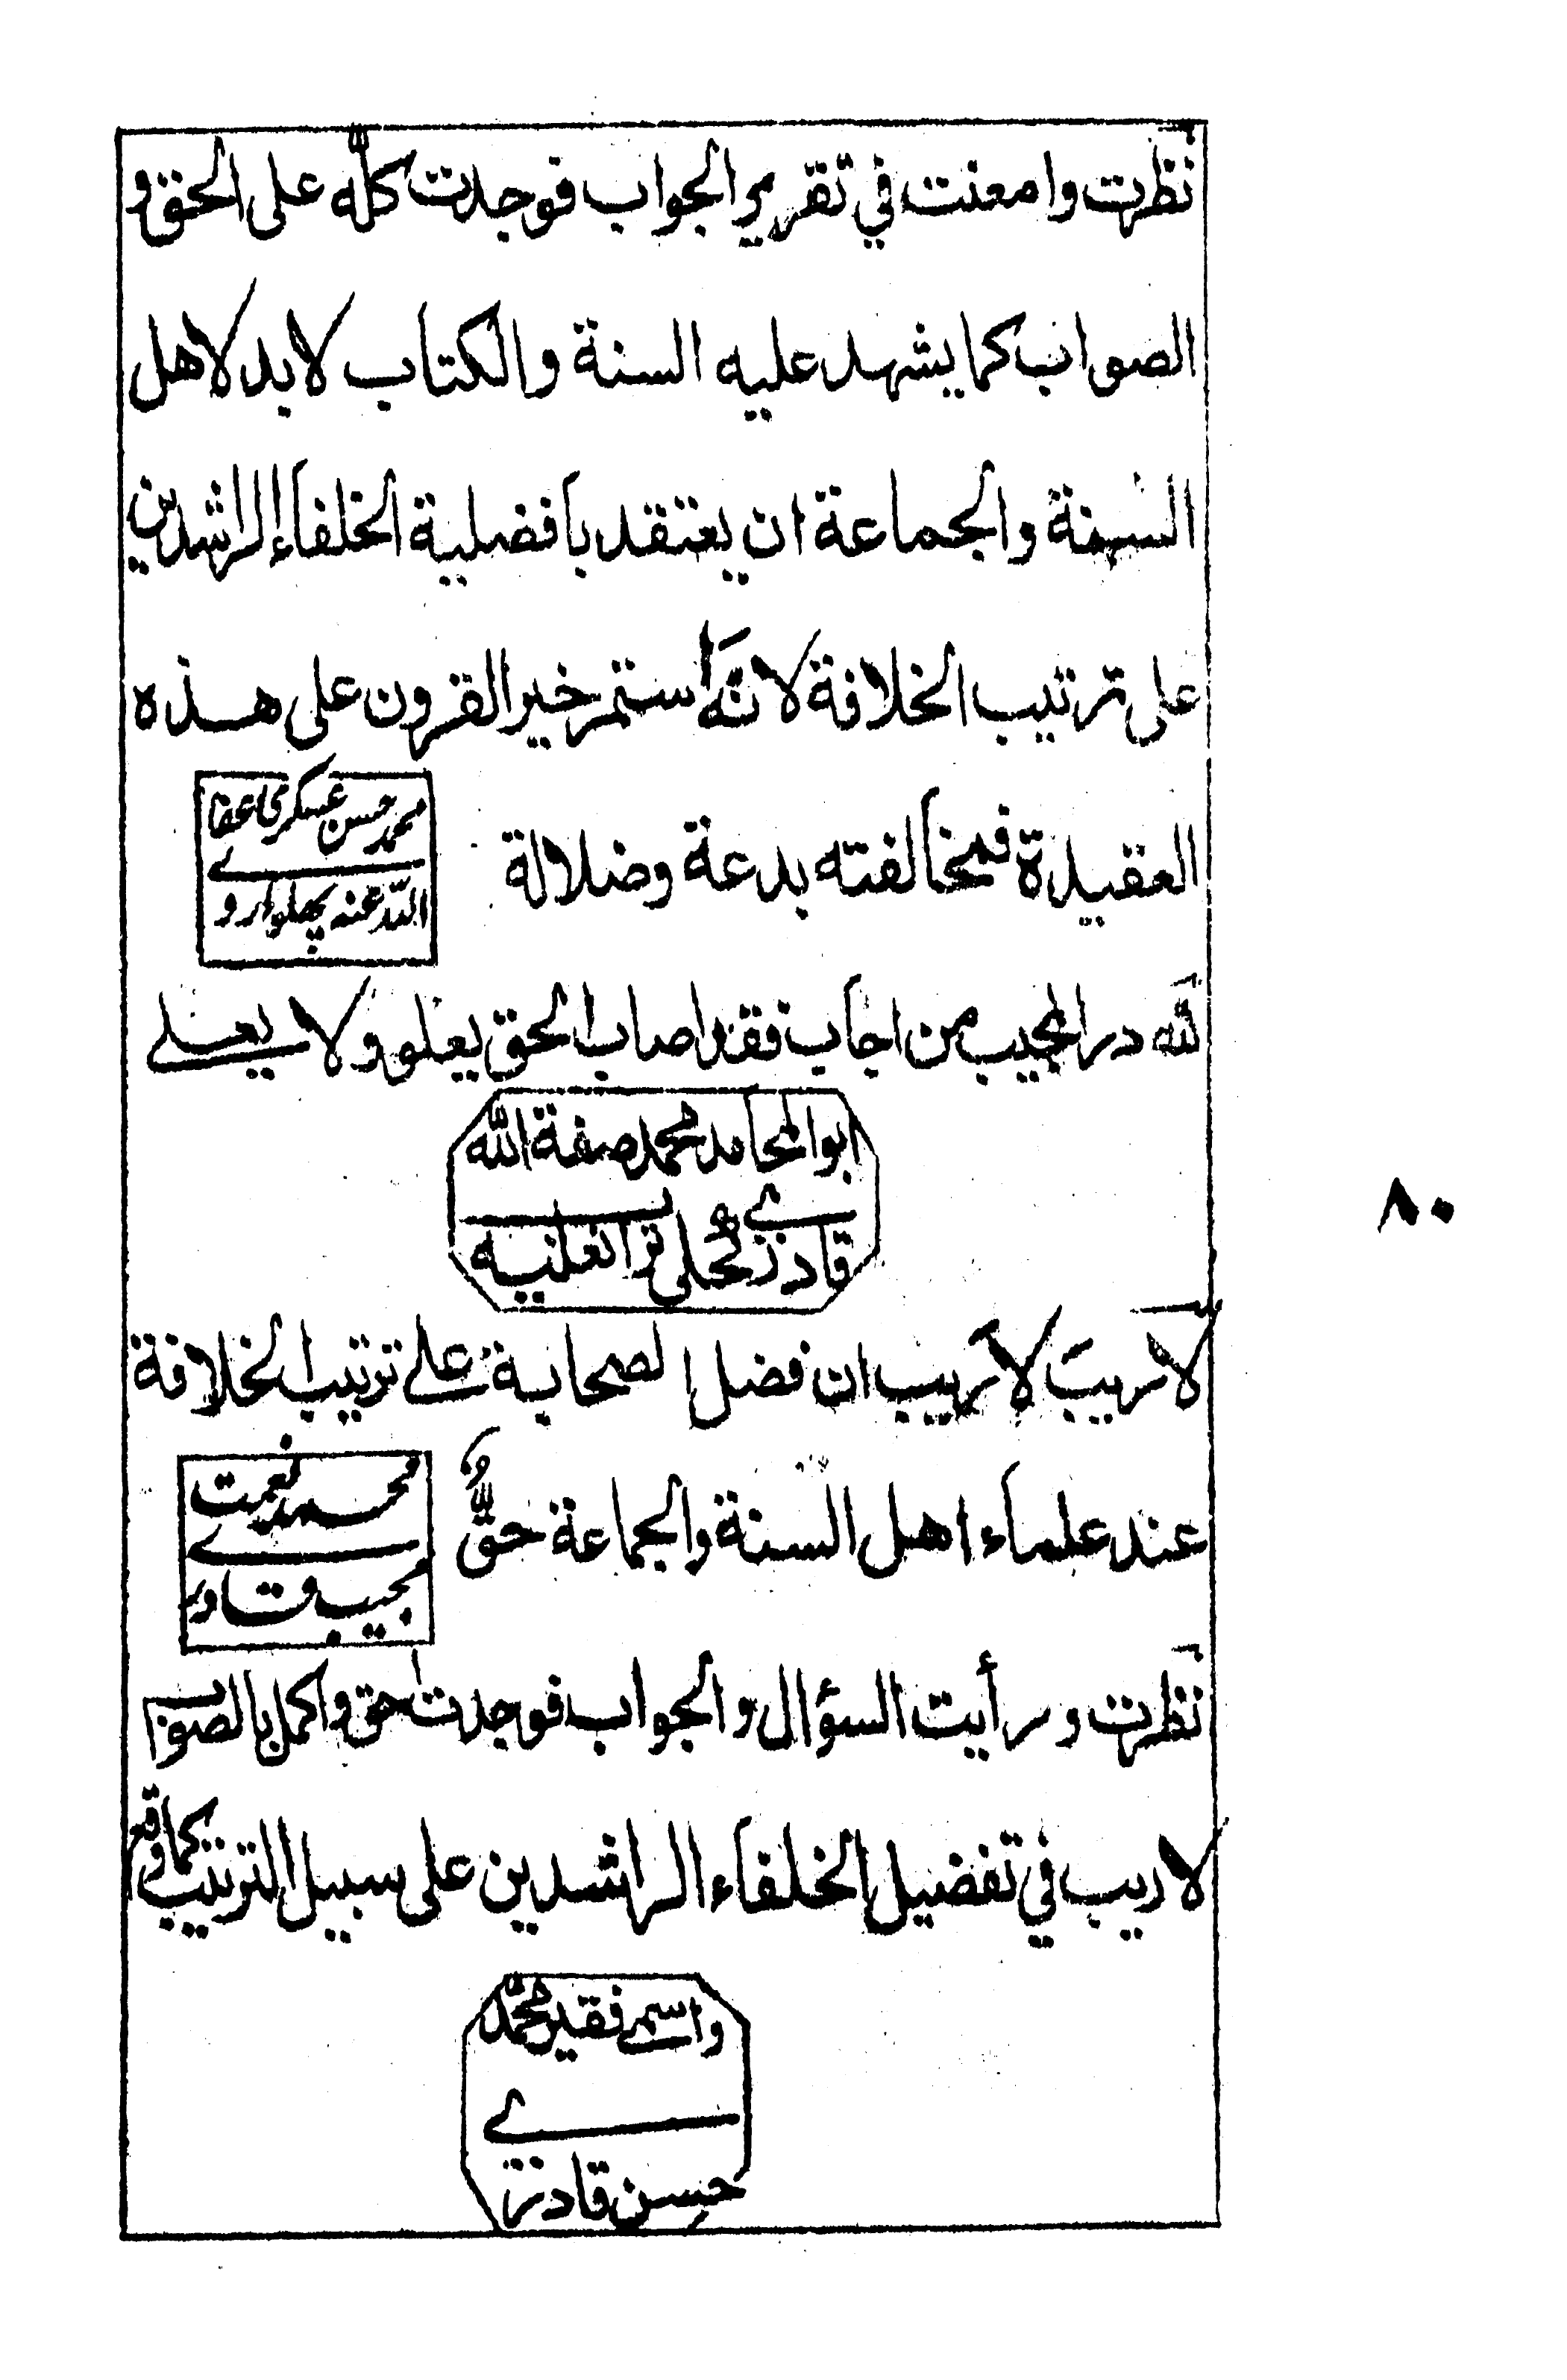 نظرت وامعنت في تقرير الجواب فوجدت كله على الحق و
الصواب كما يشهد عليه السنة والكتاب لا بد لاهل
السنة والجماعة ان يعتقد بافضلية الخلفاء الراشدين
على ترتيب الخلافة لانه استمر خير القرون على هذه
العقيدة فمخالفته بدعة وضلالة
محمد حسن عسكري عفا
الله عنه پھلواروی
لله در المجيب من اجاب فقد اصاب الحق يعلو ولا يعلى
ابو المحامد محمد صفة الله
قادری
٨٠
لاريب لاريب ان فضل الصحابة على ترتيب الخلافة
عند علماء اهل السنة والجماعة حق
محمد نعمت
مجيب قادری
نظرت ورأيت السؤال والجواب فوجدت احق واكمل بالصواب
لاريب في تفضيل الخلفاء الراشدين على سبيل الترتيب كما وقع
واسمي فقير محمد
حسن قادری